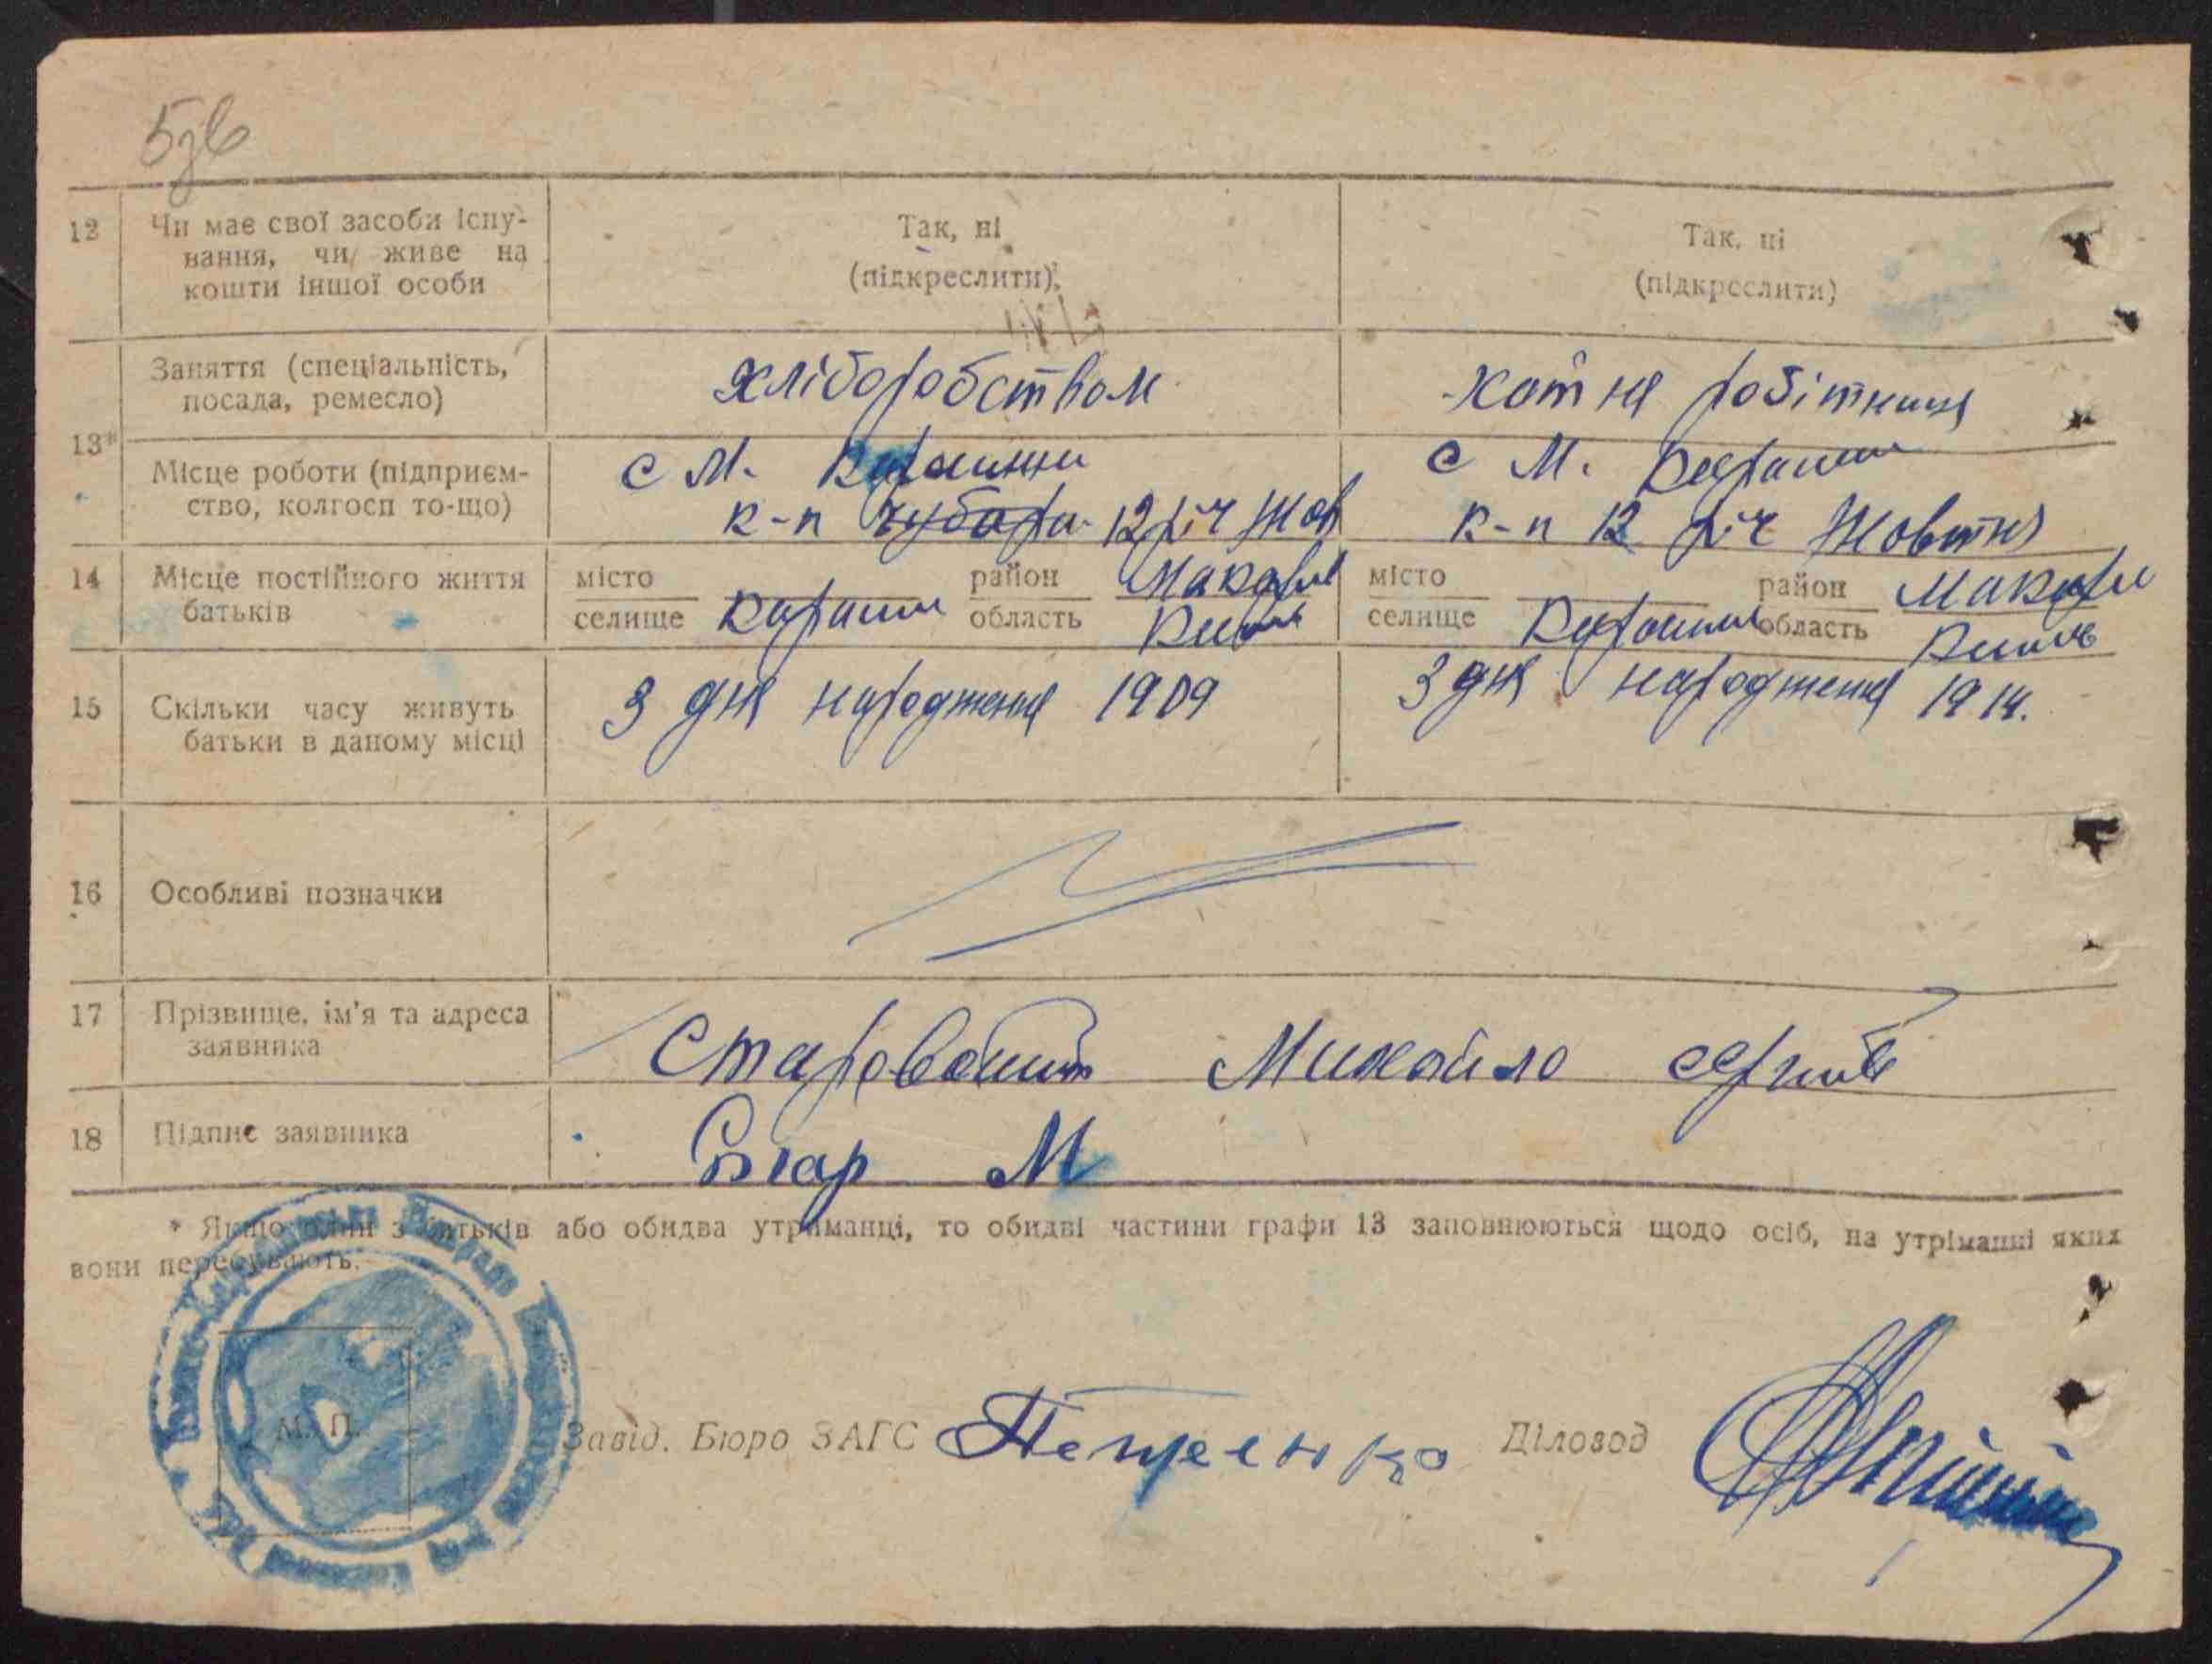 5зв
12 Чи має свої засоби існу-
вання, чи живе на
кошти іншої особи
Так, ні
(підкреслити)
Так, ні
(підкреслити)
13*
Заняття (спеціальність,
посада, ремесло)
хліборобством
хотня робітниця
Місце роботи (підприєм-
ство, колгосп то-що)
с М. Карашин
к-п Чубаря 12 річ Жов
с М. Карашин
к-п 12 річ Жовтня
14 Місце постійного життя
батьків
місто
селище Карашин
район Макарів
область Київ
місто
селище Карашин
район Макарів
область Київ
15 Скільки часу живуть
батьки в даному місці
З дня народження 1909
З дня народження 1914.
16 Особливі позначки
17 Прізвище, ім'я та адреса
заявника
Старовойт Михайло
18 Підпис заявника
Стар М
* Якщо один з батьків або обидва утриманці, то обидві частини графи 13 заповнюються щодо осіб, на утріманні яких
вони перебувають.
М. П.
Завід. Бюро ЗАГС Петренко Діловод